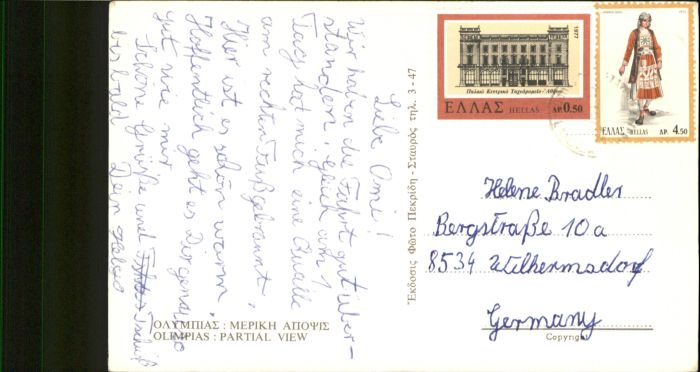 Liebe Omi!
Wir haben die Fahrt gut über-
standen. Gleich am 1.
Tag hat mich eine Qualle
am rechten Fuß gebrannt.
Hier ist es schön warm.
Hoffentlich geht es Dir genauso
gut wie mir.
Schöne Grüße und Tschüß
bis bald
Dein
ΟΛΥΜΠΙΑΣ : ΜΕΡΙΚΗ ΑΠΟΨΙΣ
OLIMPIAS : PARTIAL VIEW
Ἔκδοσις Φῶτο Πεκρίδη - Σταυρός τηλ. 3 - 47
1977
Παλαιό Κεντρικό Ταχυδρομεῖο - Ἀθήνα
ΕΛΛΑΣ HELLAS ΔΡ. 0.50
ΕΛΛΑΣ HELLAS ΔΡ. 4.50
Helene Bradler
Bergstraße 10a
8534 Wilhermsdorf
Germany
Copyright